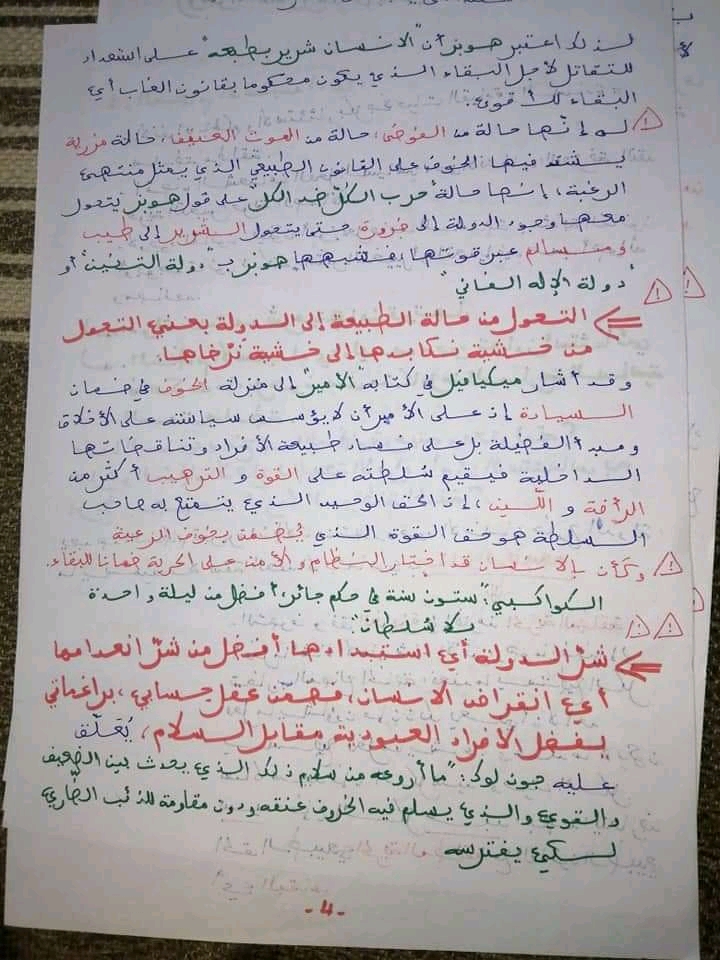 لذلك اعتبر هوبز أن "الانسان شرير بطبعه" على استعداد
للتقاتل لأجل البقاء الذي يكون محكوما بقانون الغاب أي
البقاء للأقوى.
إنها حالة من الفوضى، حالة من الموت العنيف، حالة مزرية
يشتد فيها الخوف على القانون الطبيعي الذي يمثل منتهى
الرغبة، إنها حالة "حرب الكل ضد الكل" على قول هوبز يتحول
معها وجود الدولة إلى ضرورة حتى يتحول الشرير إلى طيب
ومسالم عبر قوتها يشبهها هوبز ب "دولة التنين" أو
"دولة الإله الفاني"
التحول من حالة الطبيعة إلى الدولة يعني التحول
من خشية نكابدها إلى خشية نرضاها.
وقد أشار ميكيافيل في كتابه "الأمير" إلى منزلة الخوف في ضمان
السيادة إذ على الأمير أن لا يؤسس سياسته على الأخلاق
ومبدأ الفضيلة بل على فساد طبيعة الأفراد وتناقضاتها
الداخلية فيقيم سلطته على القوة و الترهيب أكثر من
الرأفة و اللين، إذ الحق الوحيد الذي يتمتع به صاحب
السلطة هو حق القوة الذي بخوف الرعية
وكأن بالانسان قد اختار النظام والأمن على الحرية ضمانا للبقاء.
الكواكبي: "ستون سنة في حكم جائر، أفضل من ليلة واحدة
بلا سلطان".
شر الدولة أي استبدادها أفضل من شر انعدامها
أي انقراض الانسان، عقل حسابي، براغماتي
يفضل الأفراد العبودية مقابل السلام، يُعلّق
عليه جون لوك: "ما أروعه من سلام ذلك الذي يحدث بين الضعيف
والقوي والذي يسلم فيه الخروف عنقه ودون مقاومة للذئب الضاري
لكي يفترسه
-4-